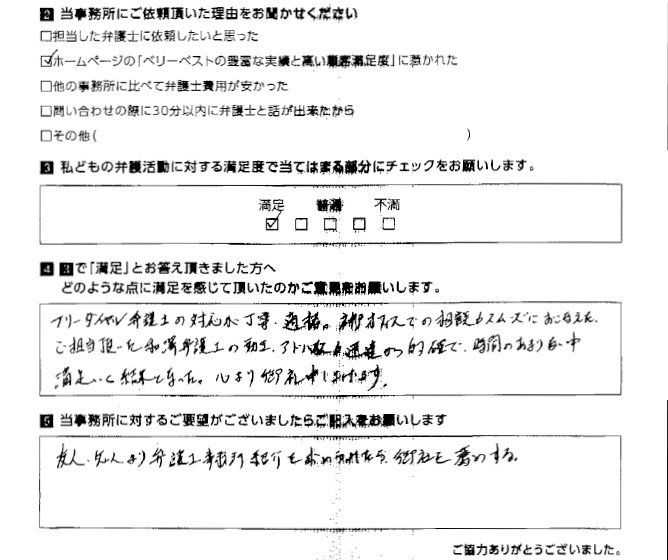 2 当事務所にご依頼頂いた理由をお聞かせください
□担当した弁護士に依頼したいと思った
☑ホームページの「ベリーベストの豊富な実績と高い顧客満足度」に惹かれた
□他の事務所に比べて弁護士費用が安かった
□問い合わせの際に30分以内に弁護士と話が出来たから
□その他( )
3 私どもの弁護活動に対する満足度で当てはまる部分にチェックをお願いします。
満足 普通 不満
☑ □ □ □ □
4 3で「満足」とお答え頂きました方へ
どのような点に満足を感じて頂いたのかご意見をお願いします。
フリーダイヤル弁護士の対応が丁寧、適格。 オフィスでの相談もスムーズにおこなえた。
ご担当頂いた 弁護士の アドバイスも迅速かつ的確で、時間のあまりない中
満足いく結果となった。心より御礼申し上げます。
5 当事務所に対するご要望がございましたらご記入をお願いします
友人、知人より弁護士事務所紹介を求められたら、御社を薦めする。
ご協力ありがとうございました。